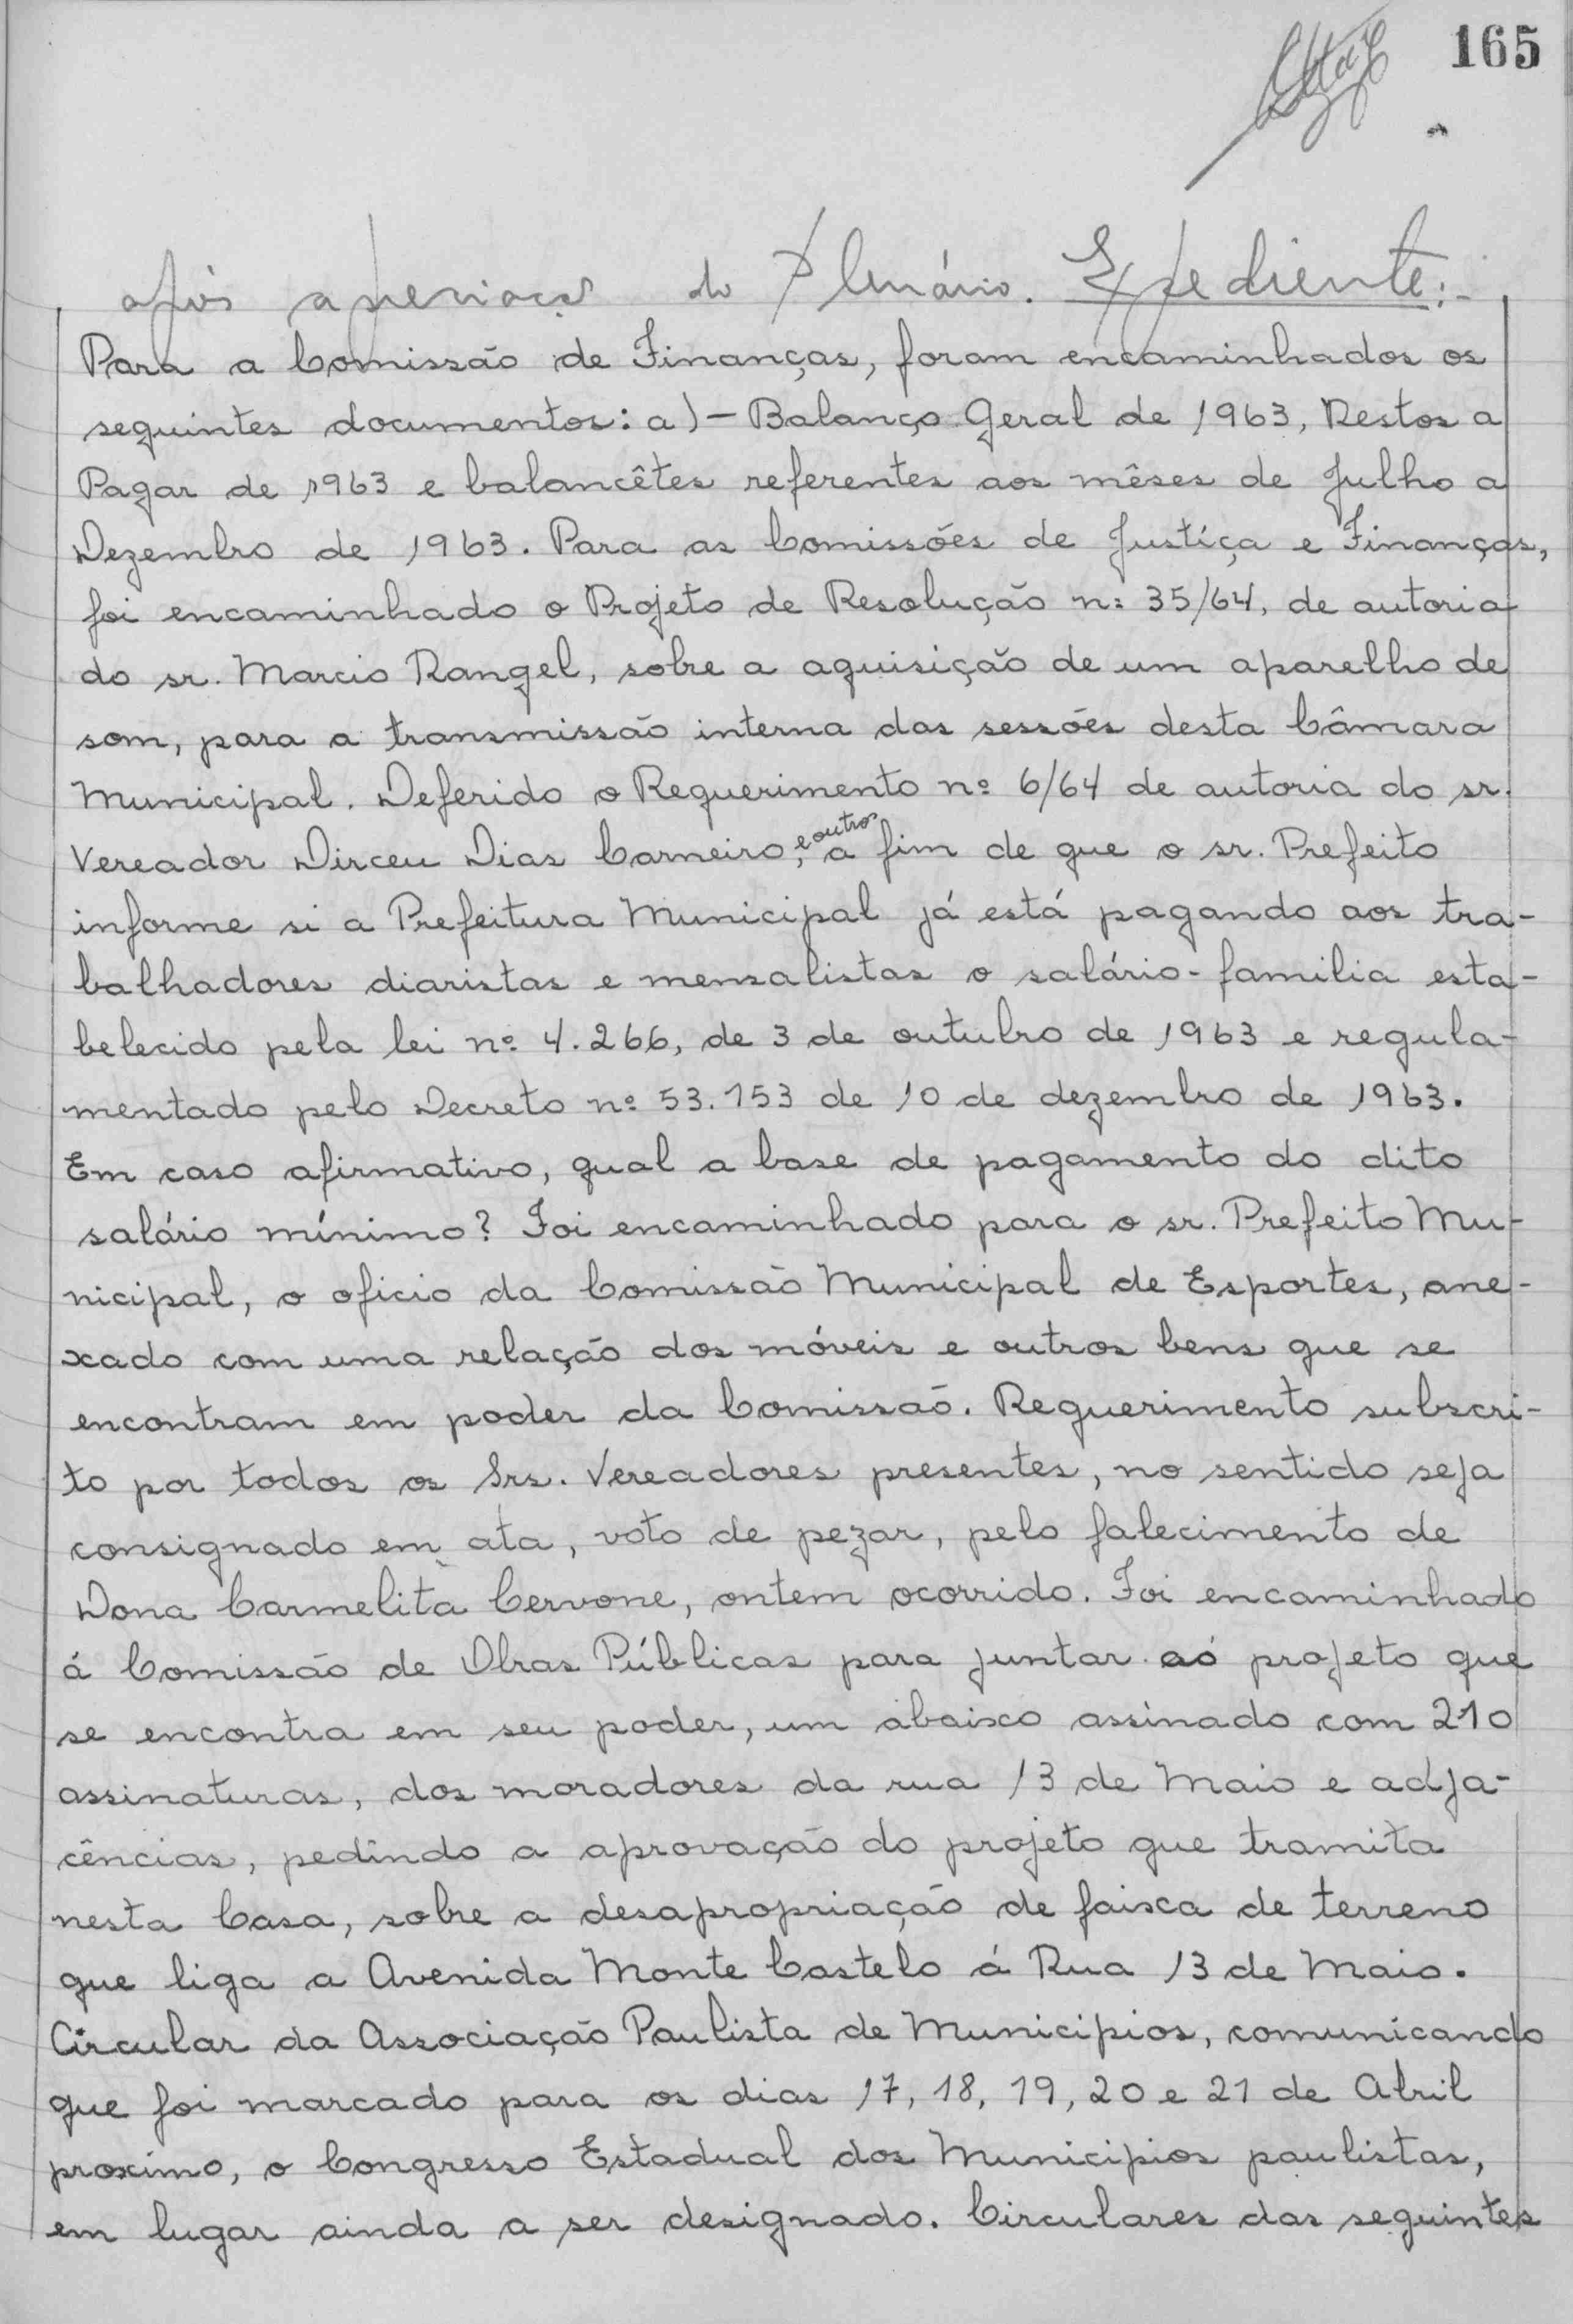 165
após apreciação do Plenário. Expediente:-
Para a Comissão de Finanças, foram encaminhados os
seguintes documentos: a)- Balanço Geral de 1963, Restos a
Pagar de 1963 e balancêtes referentes aos mêses de Julho a
Dezembro de 1963. Para as Comissões de Justiça e Finanças,
foi encaminhado o Projeto de Resolução nº 35/64, de autoria
do sr. Marcio Rangel, sobre a aquisição de um aparelho de
som, para a transmissão interna das sessões desta Câmara
Municipal. Deferido o Requerimento nº 6/64 de autoria do sr.
Vereador Dirceu Dias Carneiro, e outros a fim de que o sr. Prefeito
informe si a Prefeitura Municipal já está pagando aos tra-
balhadores diaristas e mensalistas o salário-familia esta-
belecido pela lei nº 4.266, de 3 de outubro de 1963 e regula-
mentado pelo Decreto nº 53.153 de 10 de dezembro de 1963.
Em caso afirmativo, qual a base de pagamento do dito
salário mínimo? Foi encaminhado para o sr. Prefeito Mu-
nicipal, o oficio da Comissão Municipal de Esportes, ane-
xado com uma relação dos móveis e outros bens que se
encontram em poder da Comissão. Requerimento subscri-
to por todos os Srs. Vereadores presentes, no sentido seja
consignado em ata, voto de pezar, pelo falecimento de
Dona Carmelita Cervone, ontem ocorrido. Foi encaminhado
á Comissão de Obras Públicas para juntar ao projeto que
se encontra em seu poder, um abaixo assinado com 210
assinaturas, dos moradores da rua 13 de Maio e adja-
cências, pedindo a aprovação do projeto que tramita
nesta Casa, sobre a desapropriação de faixa de terreno
que liga a Avenida Monte Castelo á Rua 13 de Maio.
Circular da Associação Paulista de Municipios, comunicando
que foi marcado para os dias 17, 18, 19, 20 e 21 de Abril
proximo, o Congresso Estadual dos Municipios paulistas,
em lugar ainda a ser designado. Circulares das seguintes